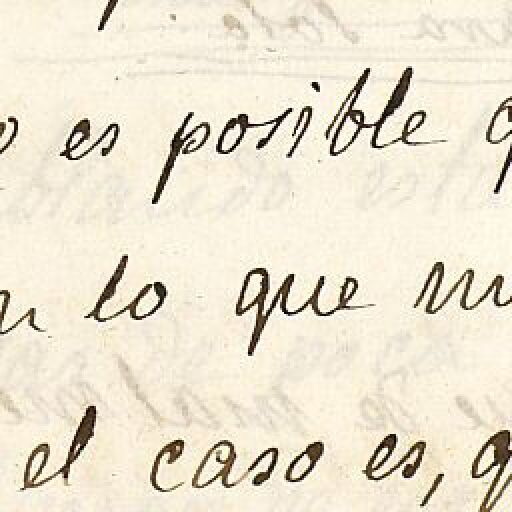 es posible
lo que
el caso es,